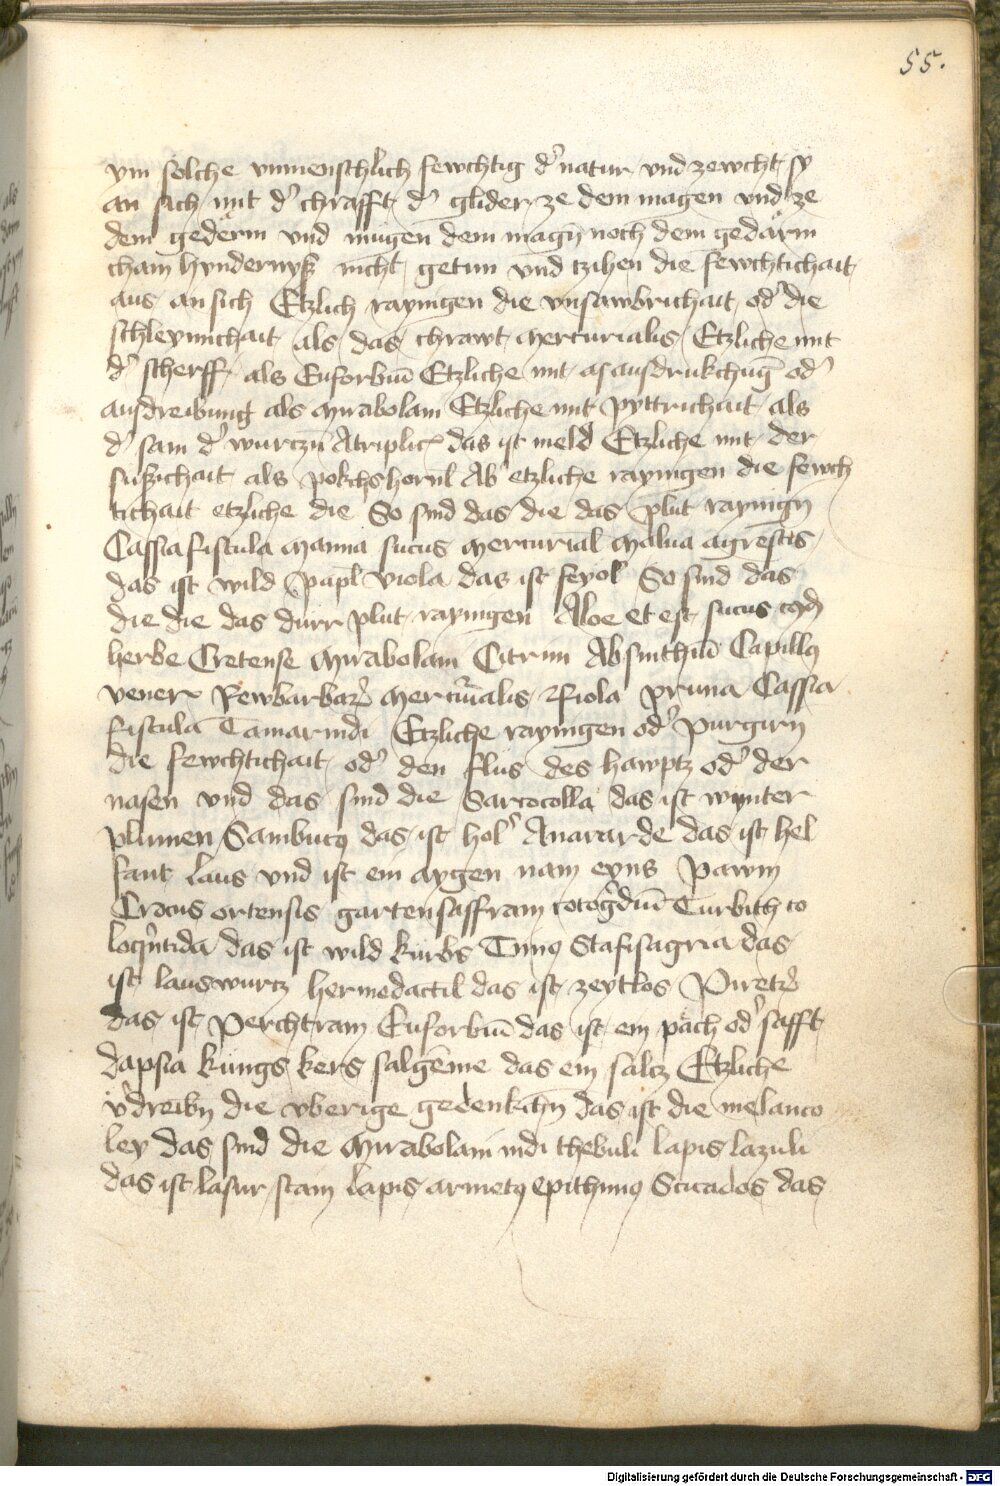 55.
ym solche vnmenschlich fewchtig d' natur vnd zewcht sy
an sich mit d' chrafft d' glider ze dem magen vnd ze
dem gedërm vnd mügen dem magñ noch dem gedärm
chain hyndernyß nicht getun vnd tzihen die fewchtichait
aus an sich Etzlich rayingen die vnsawbrichait od' die
schleymichait als das chrawt mercurialis Etzliche mit
d' scherff als Euforbiū Etzliche mit ausdrukchūg od'
ausdreibung als mirabolani Etzliche mit pyttrichait als
d' sam d' wurczñ Atriplic̄ das ist meld Etzliche mit der
sußichait als pokchshornl Ab' etzliche rayingen die fewch
tichait etzliche die So sind das die das plut rayingñ
Cassiafistula manna sucus mercurial malua agrestis
das ist wild papl viola das ist feyol So sind das
die die das dürr plut rayingen Aloe et est sucus
herbe Cretense mirabolani Citrini Absinthiū Capill9
vener̄ Rewbarbar' mercurialis viola pruna Cassia
fistula Tamarindi Etzliche rayingen od' purgirn
die fewchtichait od' den flüs des hawptz od' der
nasen vnd das sind die Sarcocolla das ist wynter
plumen Sambuc9 das ist hol' Anacarde das ist hel
fant laus vnd ist ein aygen nam eyns pawm
Crocus ortensis gartensaffram Turbith co
loq'ntida das ist wild kurbs Stafisagria das
ist lauswurcz hermodactil das ist zeytlos Piret'
das ist perchtram Euforbiū das ist ein pach od' safft
dapsia küngs kers salgēme das ein salcz Etzliche
v'dreibñ die vberige gedenkchñ das ist die melanco
ley das sind die mirabolani indi kebuli lapis lazuli
das ist lasur stain lapis armen9 epithim9 Sticados das
Digitalisierung gefördert durch die Deutsche Forschungsgemeinschaft - DFG